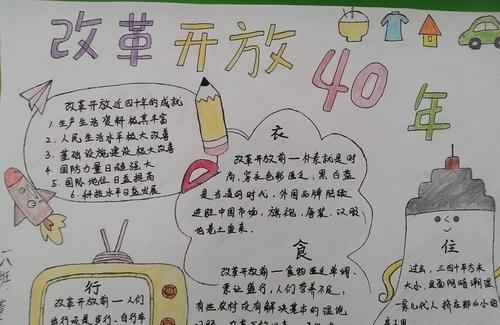 改革开放40年
改革开放近四十年的成就
1. 生产生活资料极其丰富
2. 人民生活水平极大改善
3. 基础设施建设极大改善
4. 国防力量日趋强大
5. 国际地位日益提高
6. 科技水平日益发展
衣
改革开放前一朴素就是时
尚，穿衣色彩匮乏，黑白蓝
是当道的时代，外国品牌陆续
进驻中国市场，旗袍，唐装，汉服
也卷土重来。
食
改革开放前一食物匮乏单调，
素让盛行，人们营养不足，
有些农村没有解决基本的温饱
住
过去，三四十平方米
大小，且面阴暗潮湿
一家几代人挤在那小小的
行
改革开放前一人们
步行，自行车
一八班